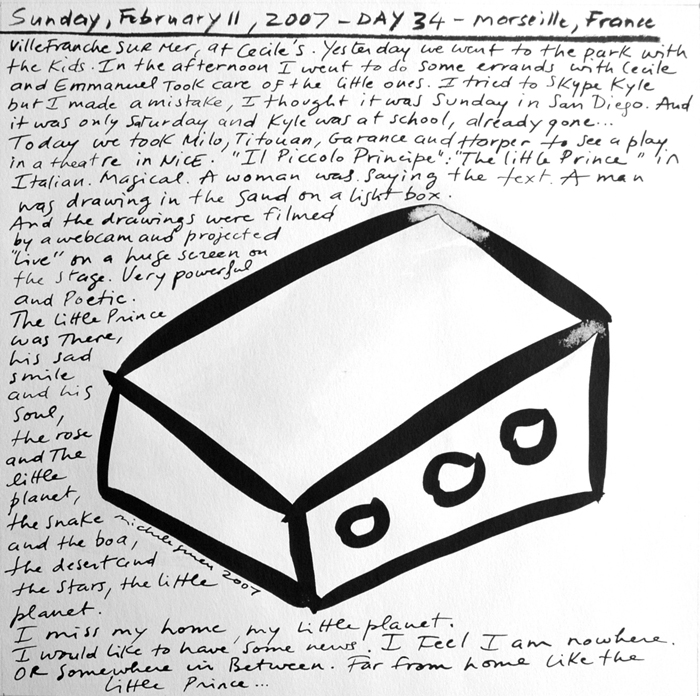 Sunday, February 11, 2007 - DAY 34 - Marseille, France
Villefranche Sur Mer, at Cecile's. Yesterday we went to the park with
the Kids. In the afternoon I went to do some errands with Cecile
and Emmanuel Took care of the little ones. I tried to SKype Kyle
but I made a mistake, I thought it was Sunday in San Diego. And
it was only Saturday and Kyle was at school, already gone...
Today we took Milo, Titouan, Garance and Harper to see a play
in a theatre in NICE. "Il Piccolo Principe". "The little Prince" in
Italian. Magical. A woman was saying the text. A man
was drawing in the sand on a light box.
And the drawings were filmed
by a webcam and projected
"live" on a huge screen on
the stage. Very powerful
and Poetic.
The Little Prince
was There,
his sad
smile
and his
Soul,
the rose
and The
little
planet,
the snake
and the boa,
the desert and
the stars, the little
planet.
2007
I miss my home, my little planet.
I would like to have some news. I Feel I am nowhere.
OR Somewhere in Between. Far from home like the
little Prince...